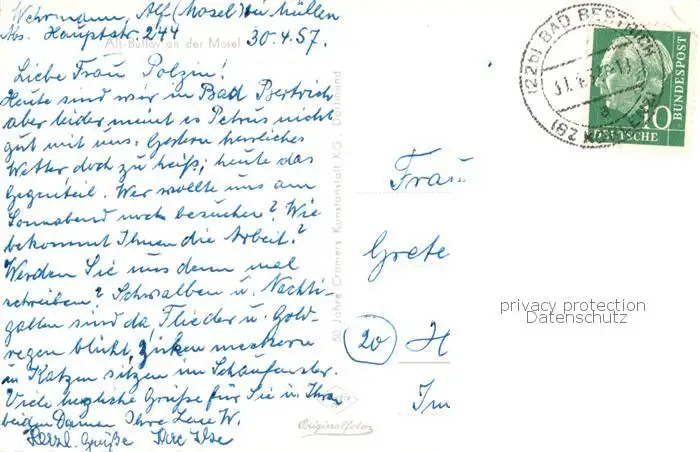 Wehrmann, Alf (Mosel) bei Müllen
Abs. Hauptstr. 244 30.4.57.
Alf-Bullay an der Mosel
Liebe Frau Polzin!
Heute sind wir in Bad Bertrich
aber leider meint es Petrus nicht
gut mit uns. Gestern herrliches
Wetter doch zu heiß; heute das
Gegenteil. Wer wollte uns am
Sonnabend noch besuchen? Wie
bekommt Ihnen die Arbeit?
Werden Sie uns denn mal
schreiben? Schwalben u. Nachti-
gallen sind da, Flieder u. Gold-
regen blüht,
u. Katzen sitzen im Schaufenster.
Viele herzliche Grüße für Sie u. Ihre
beiden Damen Ihre W.
Herzl. Grüße Ihre Ilse
50 Jahre Cramers Kunstanstalt KG., Dortmund
Originalfoto
Frau
Grete
20 H
Im
(22b) BAD BERTRICH
10
DEUTSCHE
BUNDESPOST
privacy protection
Datenschutz